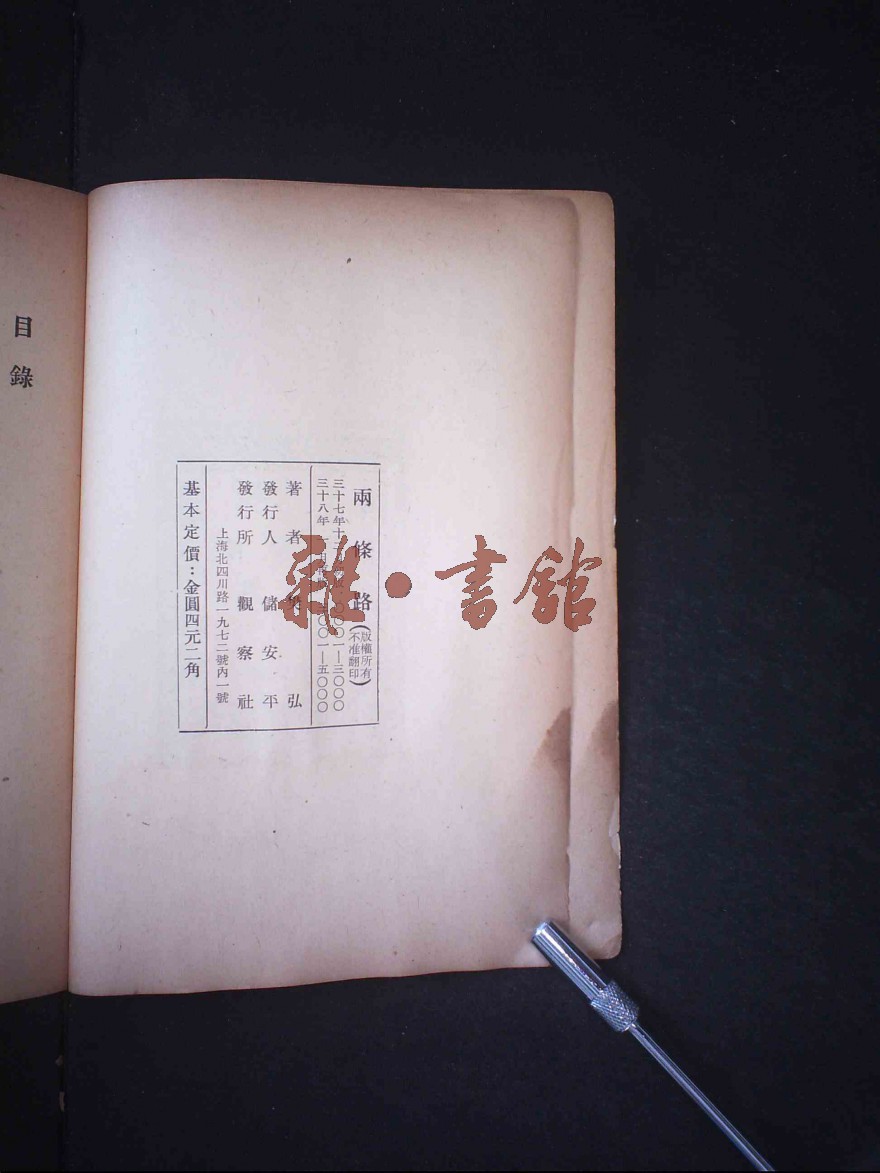 兩條路(版權所有
不准翻印)
三十七年十 〇〇〇一—三〇〇〇
三十八年 月 〇〇一—五〇〇〇
著者 弘
發行人 儲安平
發行所 觀察社
上海北四川路一九七二號內一號
基本定價：金圓四元二角
目錄
雜·書館